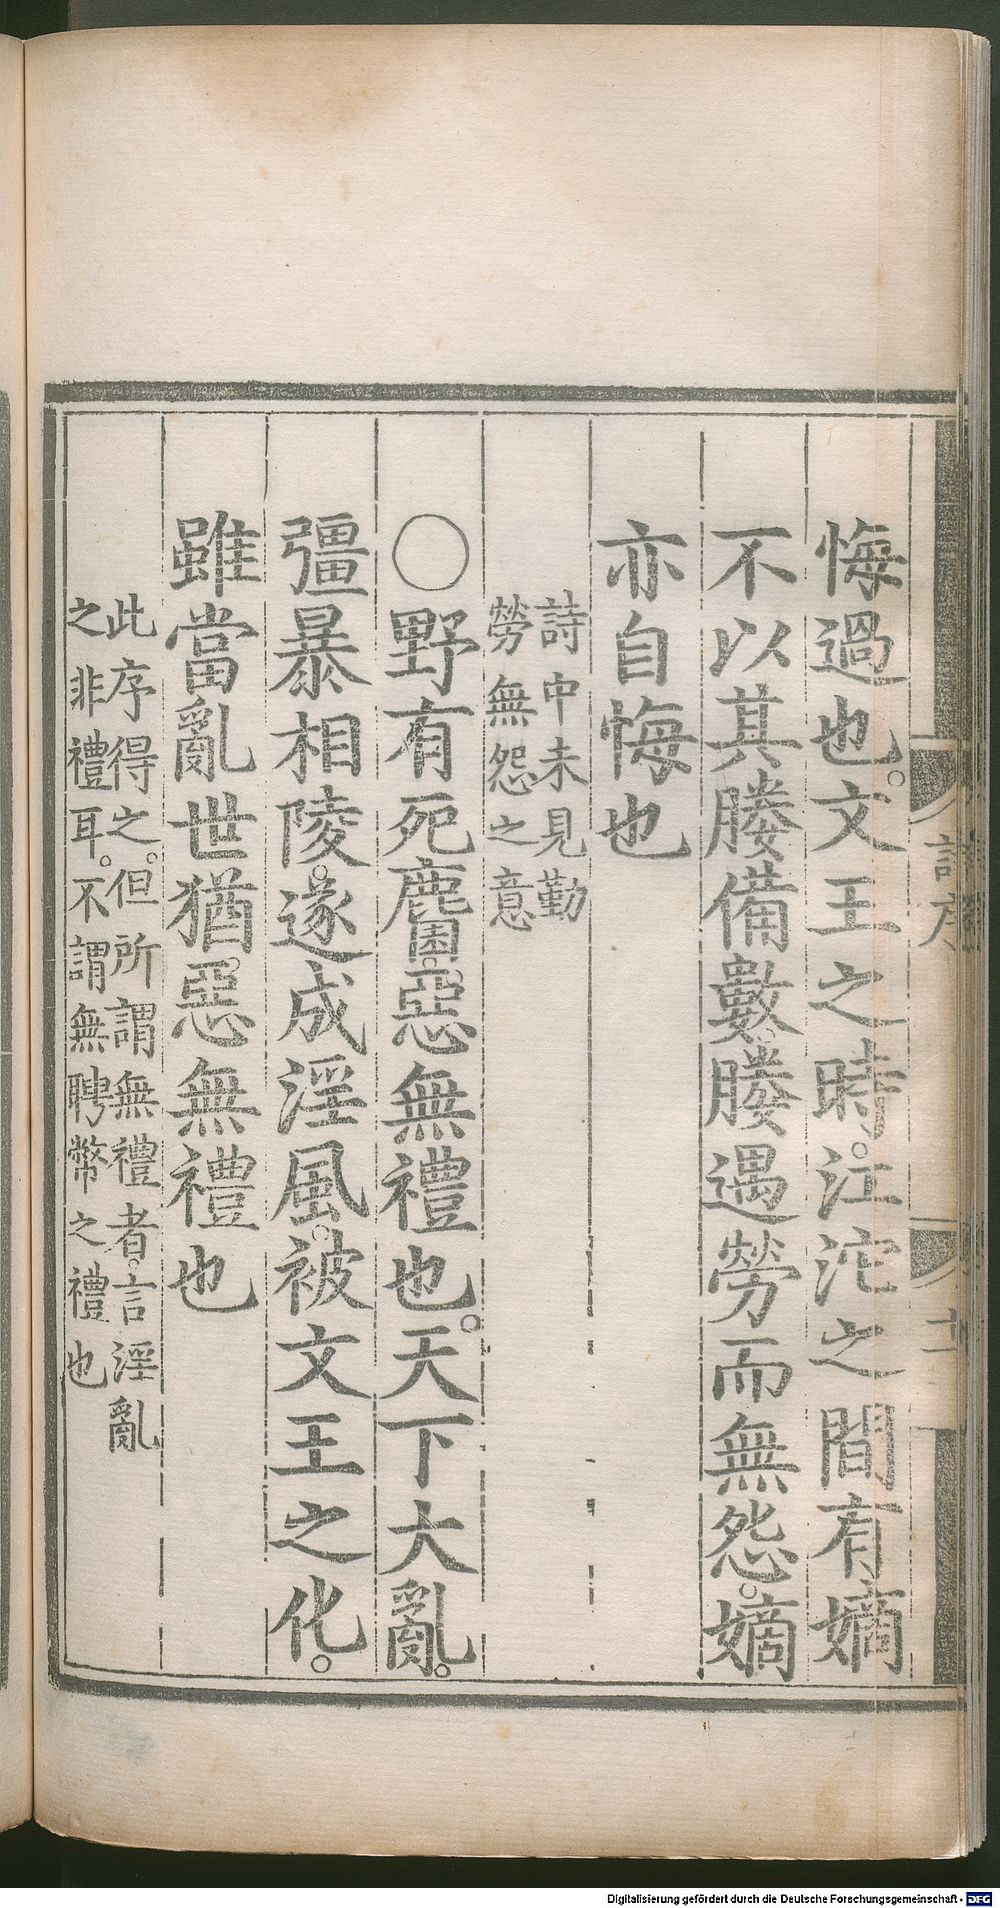 悔過也。文王之時。江沱之間有嫡
不以其媵備數。媵遇勞而無怨。嫡
亦自悔也
詩中未見勤
勞無怨之意
○野有死麕。惡無禮也。天下大亂。
彊暴相陵。遂成淫風。被文王之化。
雖當亂世猶。惡無禮也
此序得之。但所謂無禮者。言淫亂
之非禮耳。不謂無聘幣之禮也
Digitalisierung gefördert durch die Deutsche Forschungsgemeinschaft - DFG